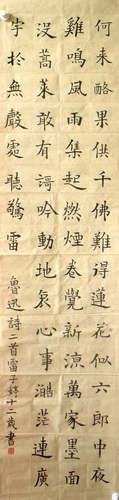 何来酪果供千佛難得蓮花似六郎中夜
雞鳴風雨集起燃煙卷覺新涼萬家墨面
没蒿萊敢有謌吟動地哀心事浩茫連廣
宇於無聲處聽驚雷
魯迅詩二首雷子婷十二歲書